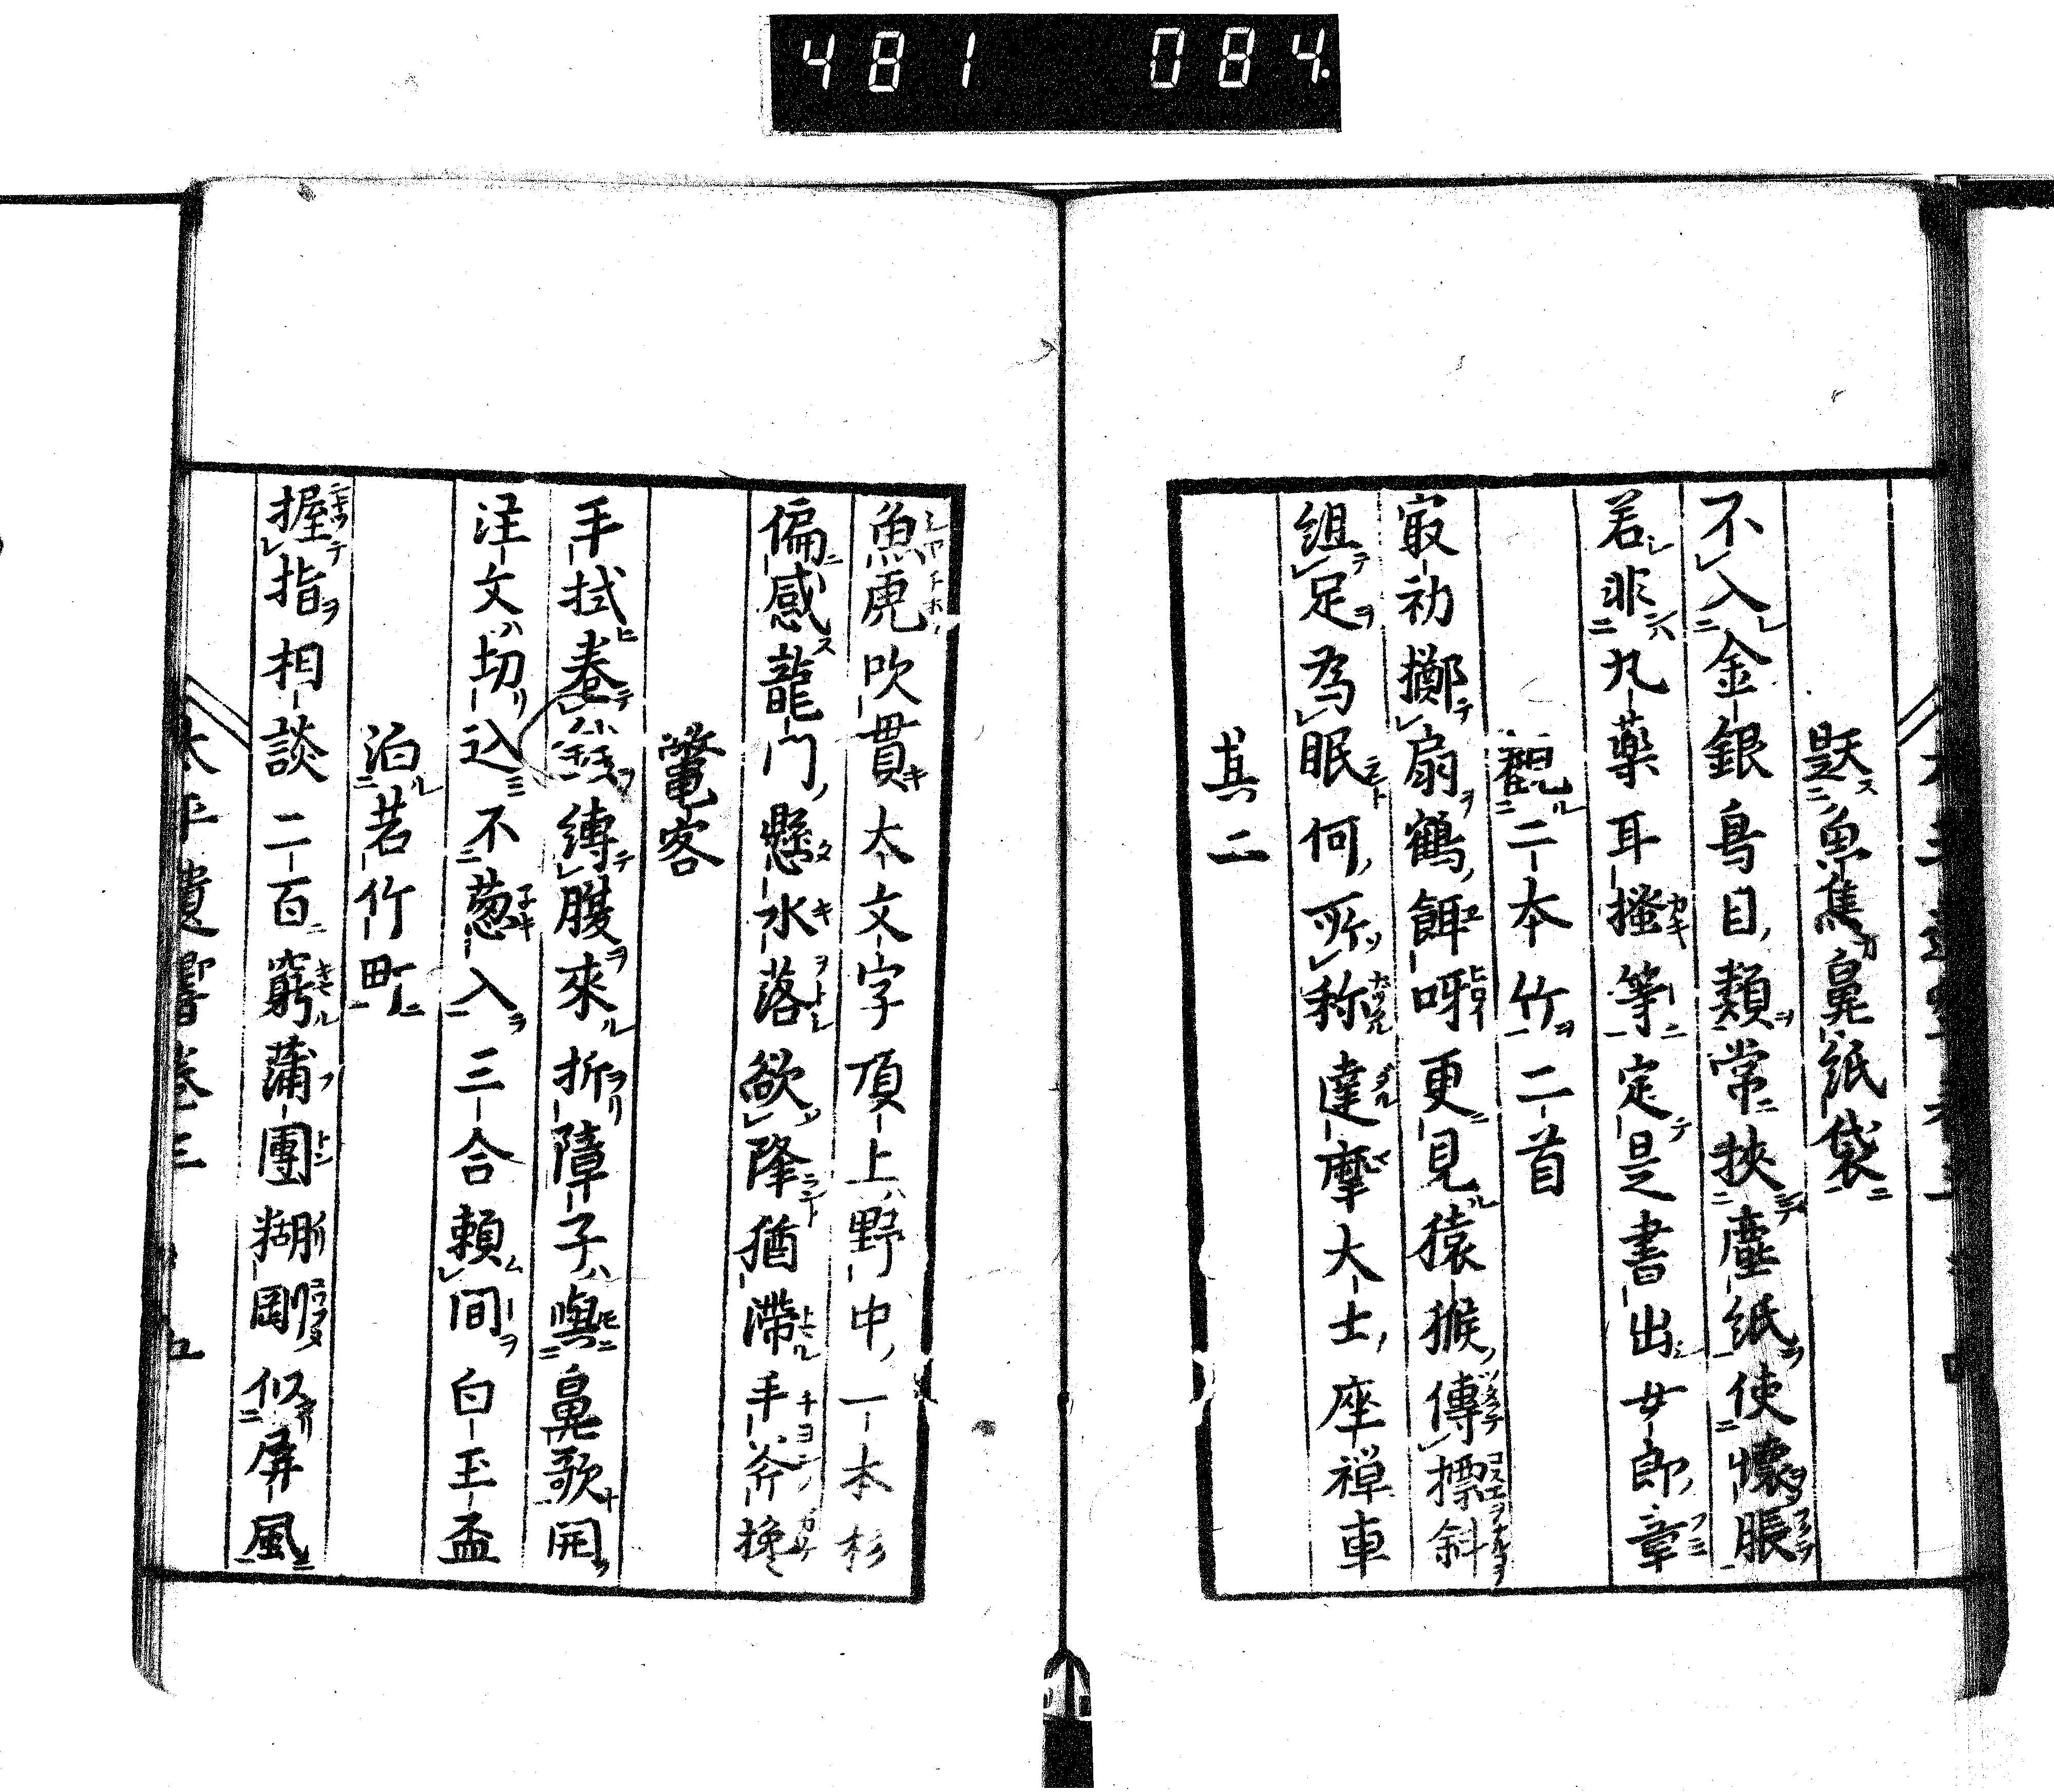 481 084
題魚焦鼻紙袋
不入金銀鳥目類常挾塵紙使懐脹
若非丸薬耳搔等定是書出女郎章
觀二本竹二首
㝡初擲扇鶴餌呀更見猿猴傳標斜
組足為眠何所称達摩大士座禅車
其二
魚虎吹貫大文字頂上野中一本杉
偏感龍門懸水落欲降猶滯手斧挽
鼈客
手拭卷錢縛腹來折障子嶼鼻歌開
注文切込不葱入三合頼間白玉盃
泊若竹町
握指相談二百窮蒲團糊剛似屏風
太平遺響卷三 五